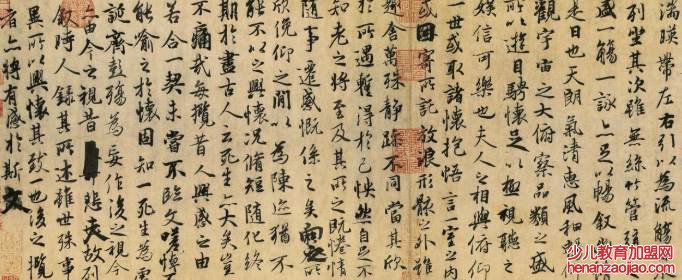 湍暎帶左右引以為流觴
列坐其次雖無絲竹管弦
盛一觴一詠亦足以暢敘
是日也天朗氣清惠風和
觀宇宙之大俯察品類之盛
所以遊目騁懷足以極視聽之
娛信可樂也夫人之相與俯仰
一世或取諸懷抱悟言一室之內
或因寄所託放浪形骸之外雖
趣舍萬殊靜躁不同當其欣
於所遇暫得於己怏然自足不
知老之將至及其所之既惓情
隨事遷感慨係之矣向之所
欣俛仰之閒以為陳迹猶不
能不以之興懷況脩短隨化終
期於盡古人云死生亦大矣豈
不痛哉每攬昔人興感之由
若合一契未嘗不臨文嗟悼不
能喻之於懷固知一死生為虛
誕齊彭殤為妄作後之視今
亦由今之視昔悲夫故列
敘時人錄其所述雖世殊事
異所以興懷其致一也後之攬
者亦將有感於斯文
少儿教育加盟网
henanzaojiao.com